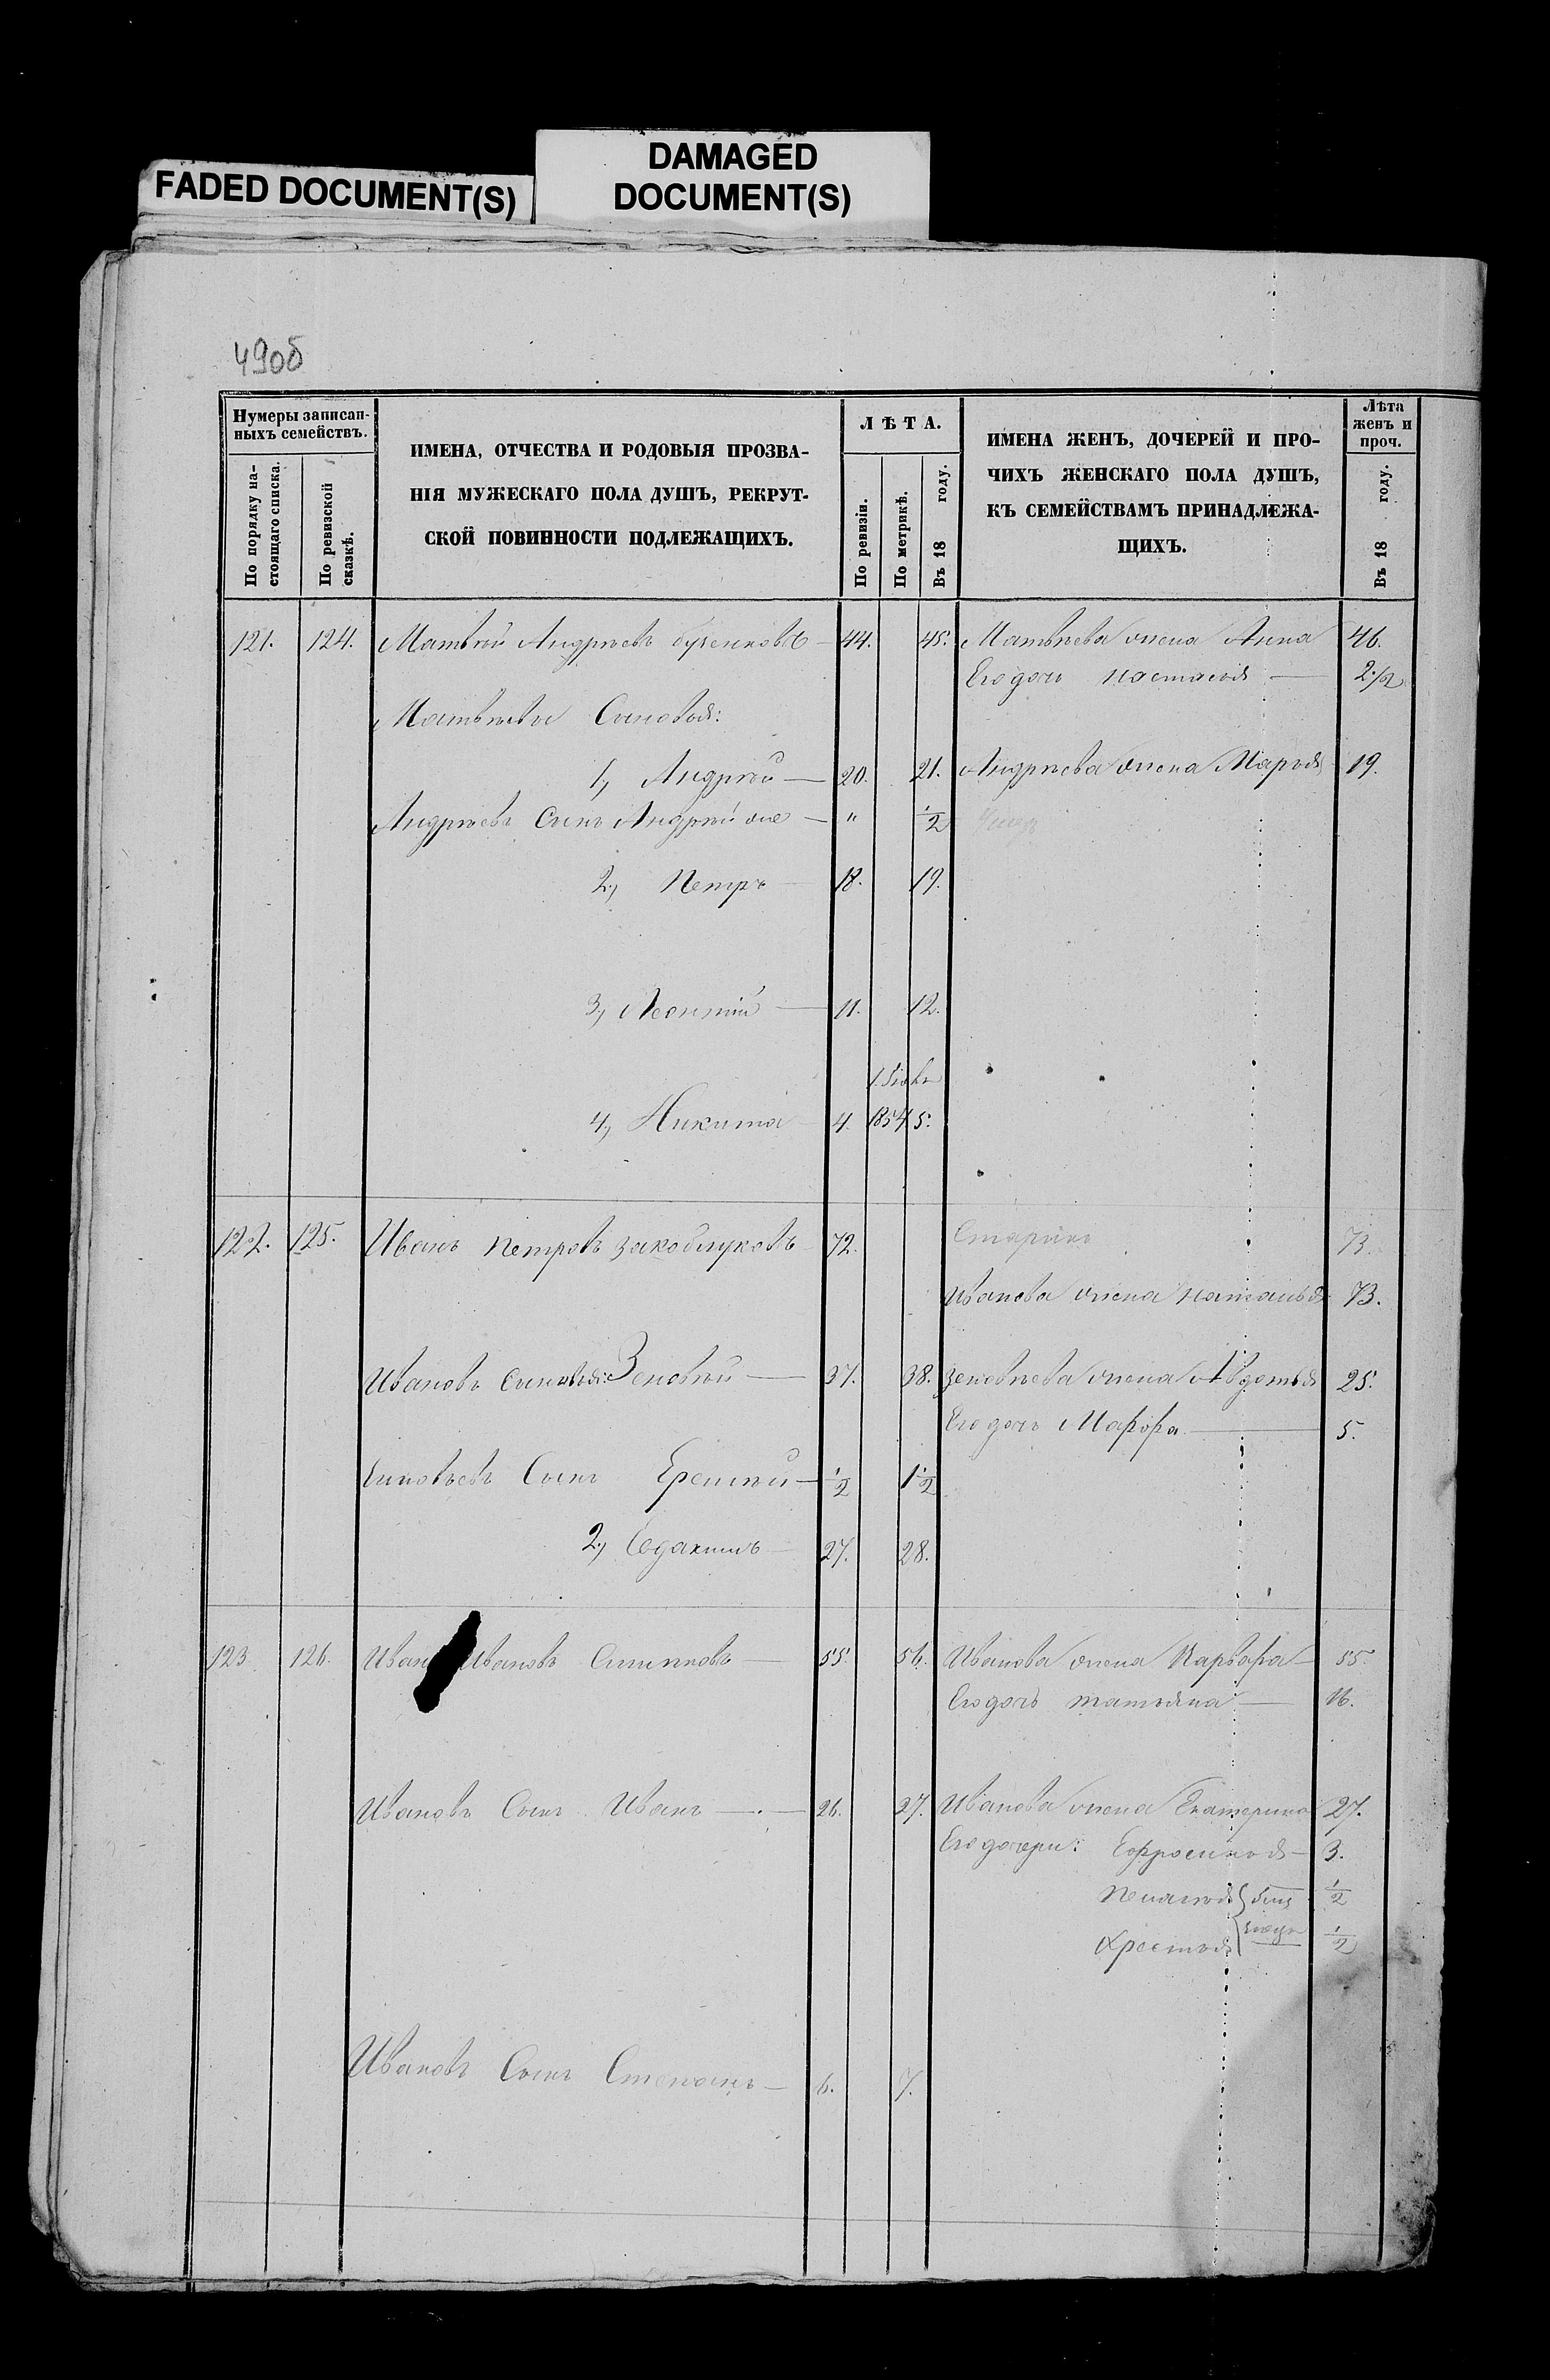 FADED DOCUMENT(S)
DAMAGED
DOCUMENT(S)
49об
Нумеры записан-
ныхъ семействъ.
По порядку на-
стоящаго списка.
По ревизской
сказкѣ.
ИМЕНА, ОТЧЕСТВА И РОДОВЫЯ ПРОЗВА-
НІЯ МУЖЕСКАГО ПОЛА ДУШЪ, РЕКРУТ-
СКОЙ ПОВИННОСТИ ПОДЛЕЖАЩИХЪ.
ЛѢТА.
По ревизіи.
По метрикѣ.
Въ 18 году.
ИМЕНА ЖЕНЪ, ДОЧЕРЕЙ И ПРО-
ЧИХЪ ЖЕНСКАГО ПОЛА ДУШЪ,
КЪ СЕМЕЙСТВАМЪ ПРИНАДЛЕЖА-
ЩИХЪ.
Лѣта
женъ и
проч.
Въ 18 году.
121. 124. Матвѣй Андрѣевъ 44. 45. Матвѣева жена Анна 46.
Его дочь настасья 2 1/2
Матвѣевы Сыновья:
1, Андрѣй 20. 21. Андрѣева жена Марья 19.
Андрѣевъ Сынъ Андрѣй же " 1/2
2, Петръ 18. 19.
3, Леонтій 11. 12.
4, Никита 4. 1854 5.
122. 125. Иванъ петровъ закаблуковъ 72. Старикъ 73.
Иванова жена наталья 73.
Ивановы сыновья: Зеновѣй 37. 38. зеновѣева жена Авдотья 25.
Его дочь Марфра 5.
Сынъ Еремѣй 1/2 1 1/2
2, 27. 28.
123. 126. Иванъ Ивановъ 55. 56. Иванова жена Варвара 55.
Его дочь татьяна 16.
Ивановъ Сынъ Иванъ 26. 27. Иванова жена Екатерина 27.
Его дочери: Ефросинья 3.
пелагѣя 1/2
1/2
Ивановъ Сынъ Степанъ 6. 7.